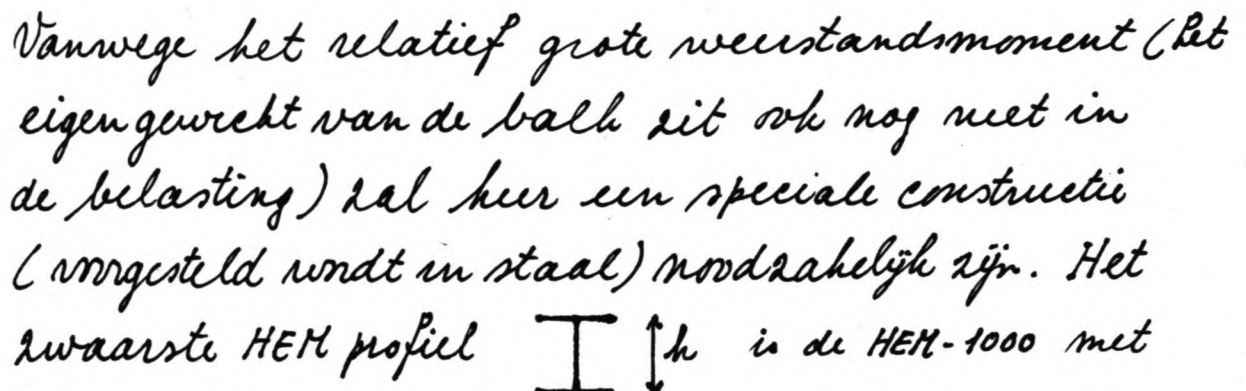 Vanwege het relatief grote weerstandsmoment (het
eigen gewicht van de balk zit ook nog niet in
de belasting) zal hier een speciale constructie
(voorgesteld wordt in staal) noodzakelijk zijn. Het
zwaarste HEM profiel h is de HEM-1000 met